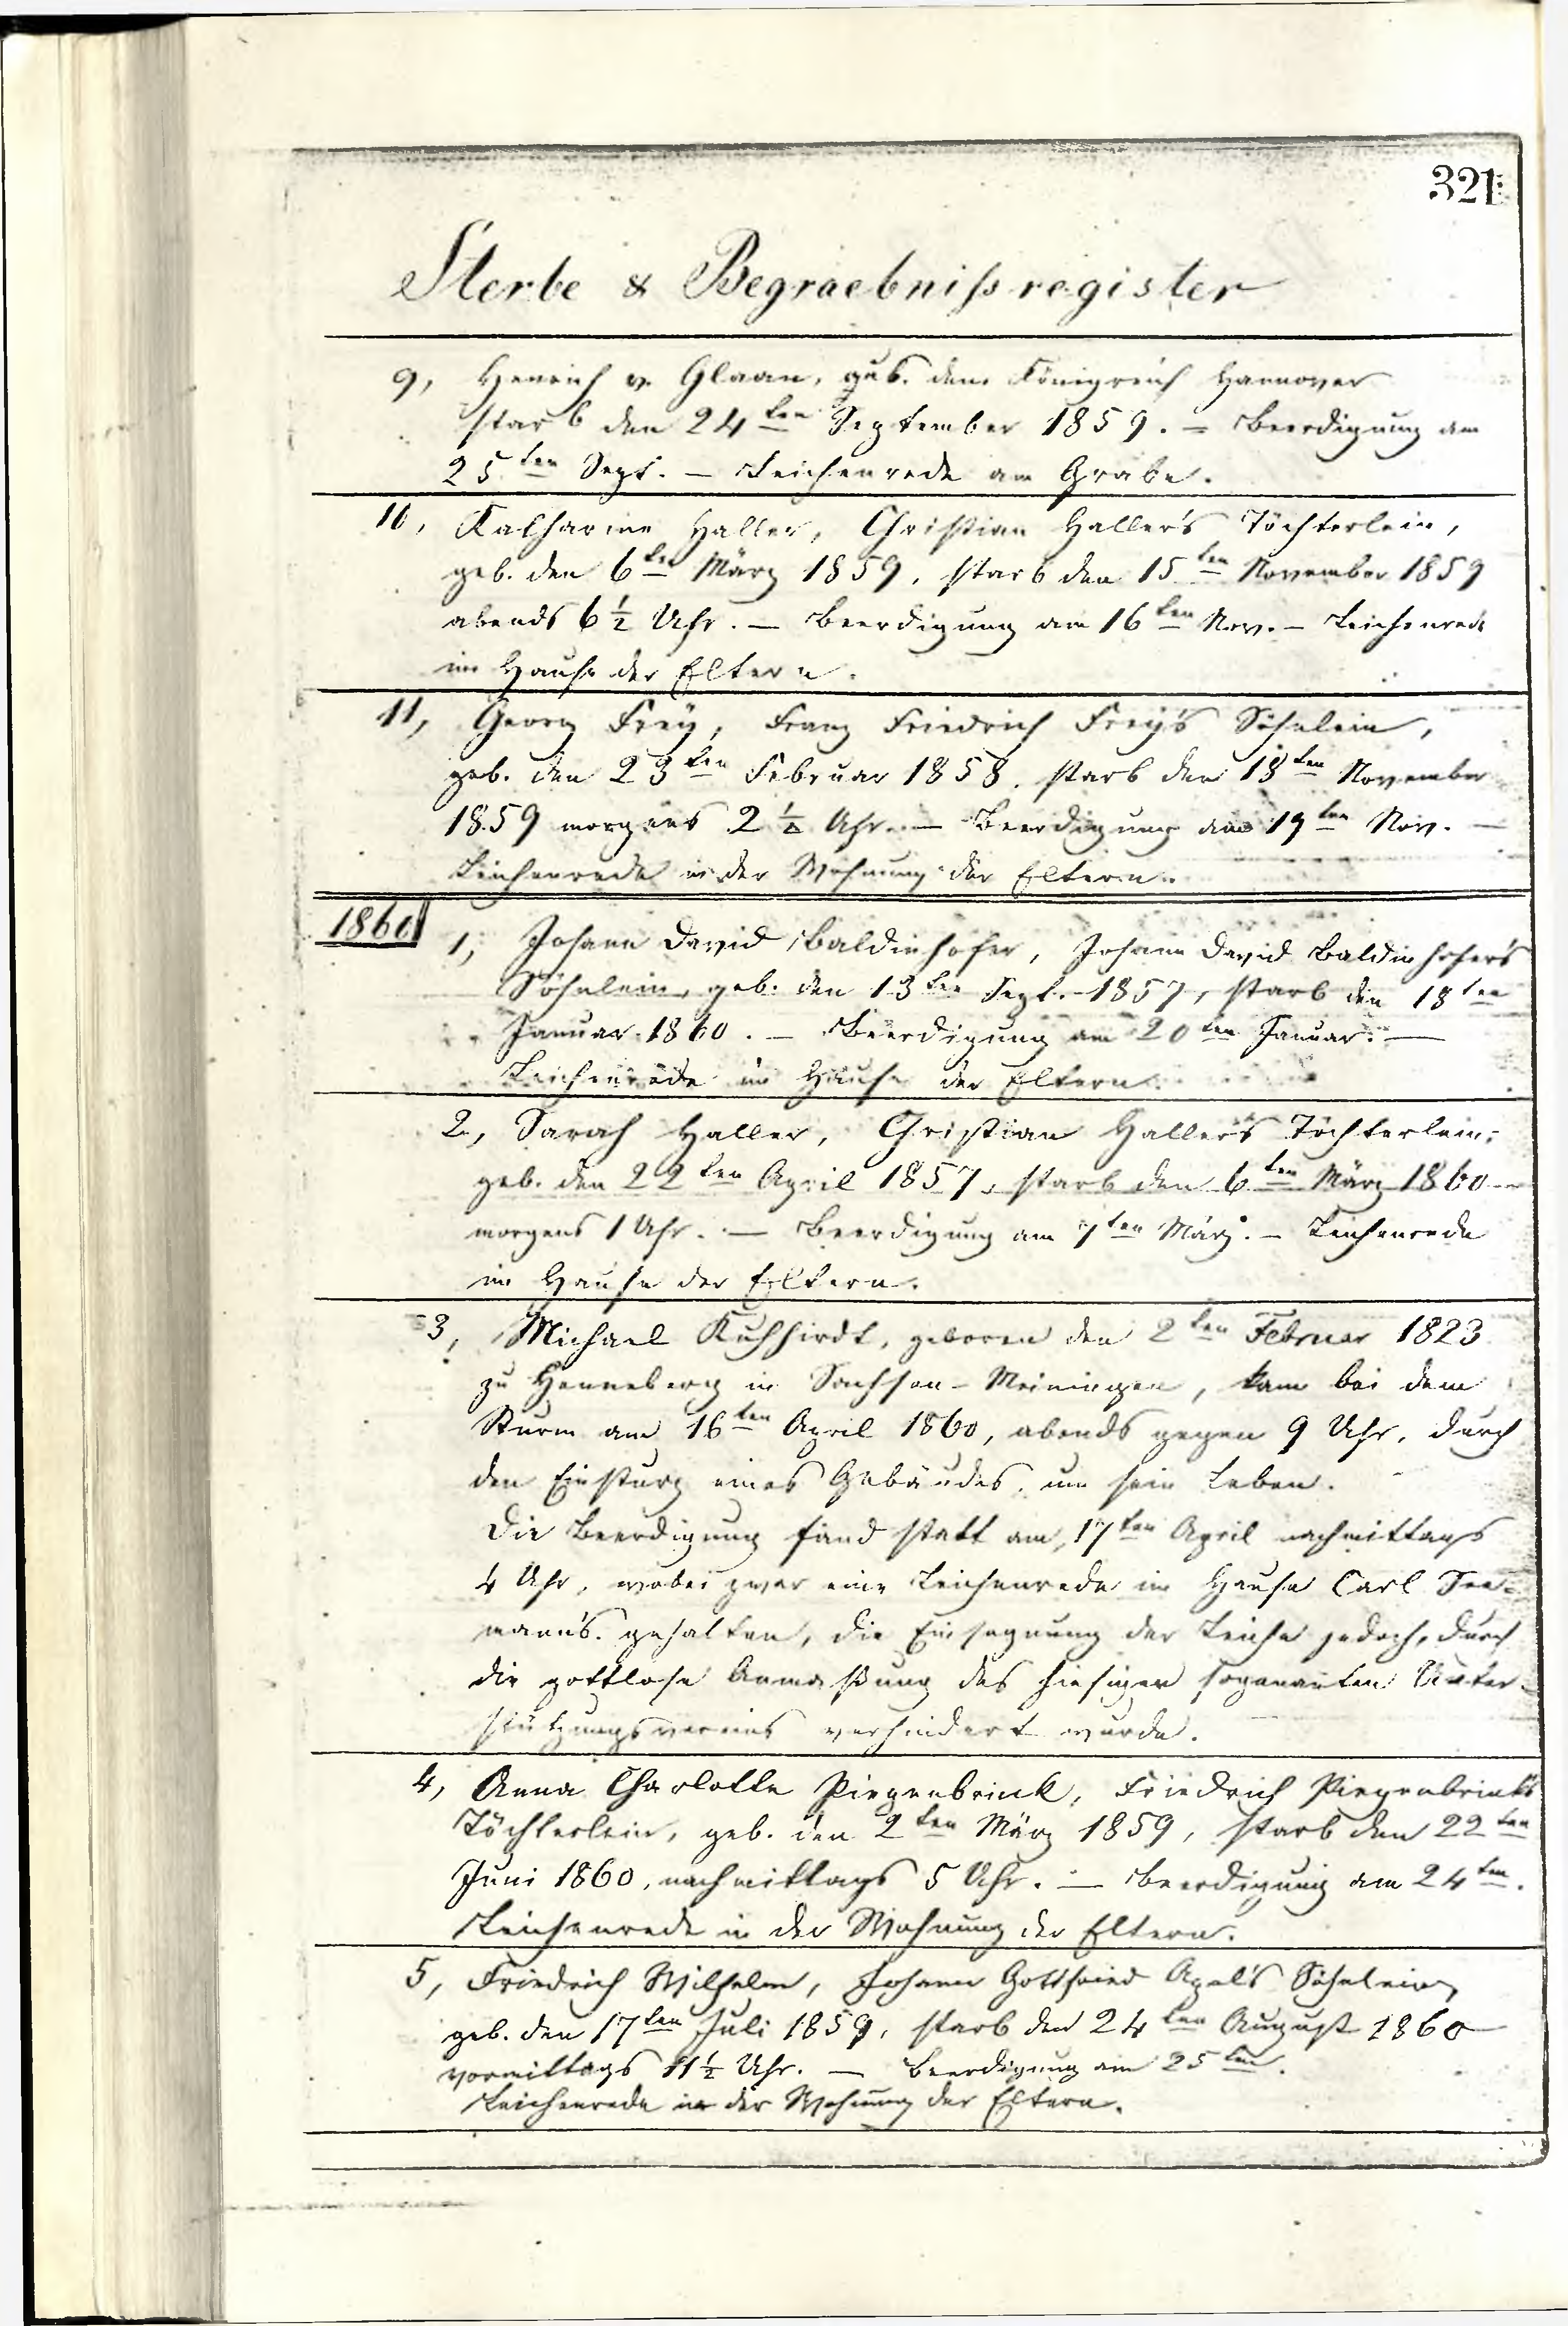 321
Sterbe & Begraebnißregister
9, Henrich v. Glaan, geb. dem Königreich Hannover
starb den 24ten September 1859. – Beerdigung am
25ten Sept. – Leichenrede am Grabe.
10, Katharine Haller, Christian Haller's Töchterlein,
geb. den 6ten März 1859, starb den 15ten November 1859
abends 6 ½ Uhr. – Beerdigung am 16ten Nov. – Leichenrede
im Hause der Eltern.
11, Georg Freÿ, Franz Friedrich Freÿ's Söhnlein,
geb. den 23ten Februar 1858, starb den 18ten November
1859 morgens 2 ½ Uhr. – Beerdigung am 19ten Nov. –
Leichenrede in der Wohnung der Eltern.
1860 1, Johann David Baldinhofer, Johann David Baldinhofer's
Söhnlein, geb. den 13ten Sept. 1857, starb den 18ten
Januar 1860. – Beerdigung am 20ten Januar. –
Leichenrede im Hause der Eltern.
2, Sarah Haller, Christian Haller's Töchterlein,
geb. den 22ten April 1857, starb den 6ten März 1860
morgens 1 Uhr. – Beerdigung am 7ten März. – Leichenrede
im Hause der Eltern.
3, Michael Kuhhirdt, geboren den 2ten Februar 1823
zu Henneberg in Sachsen-Meiningen, kam bei dem
Sturm am 16ten April 1860, abends gegen 9 Uhr, durch
den Einsturz eines Gebäudes, um sein Leben.
Die Beerdigung fand statt am 17ten April nachmittags
4 Uhr, wobei zwar eine Leichenrede im Hause Carl See-
mann's gehalten, die Einsegnung der Leiche jedoch, durch
die gottlose Anmaßung des hiesigen sogenanten Unter-
stützungsvereins verhindert wurde.
4, Anna Charlotte Piegenbrink, Friedrich Piegenbrink's
Töchterlein, geb. den 2ten März 1859, starb den 22ten
Juni 1860, nachmittags 5 Uhr. – Beerdigung am 24ten.
Leichenrede in der Wohnung der Eltern.
5, Friedrich Wilhelm, Johann Gottfried Apel's Söhnlein,
geb. den 17ten Juli 1859, starb den 24ten August 1860
vormittags 11 ½ Uhr. – Beerdigung am 25ten.
Leichenrede in der Wohnung der Eltern.